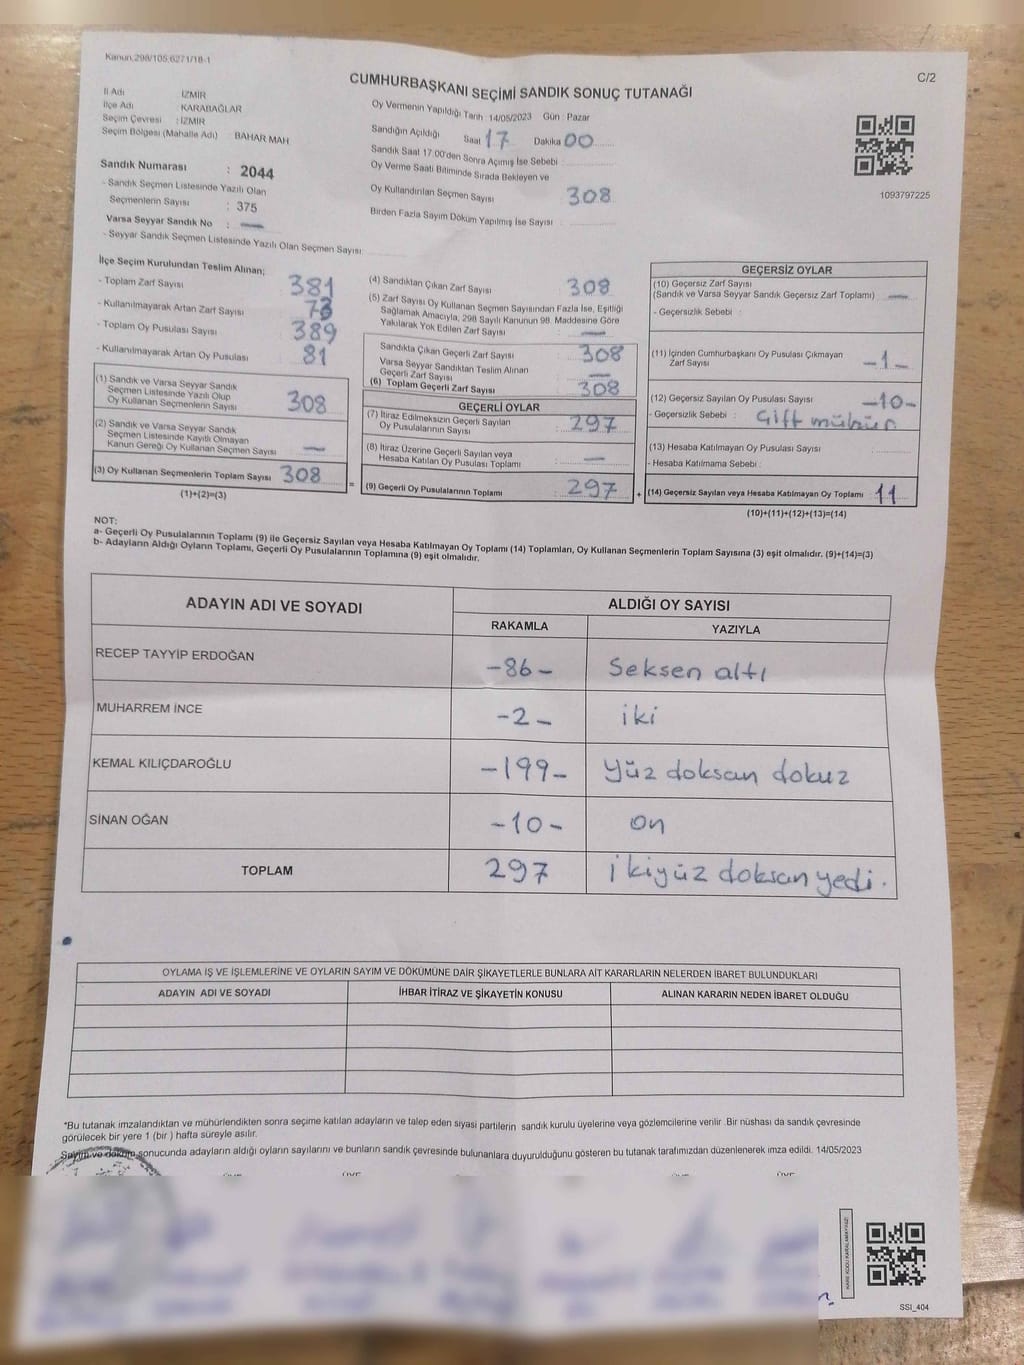 Kanun,298/105,6271/18-1
CUMHURBAŞKANI SEÇİMİ SANDIK SONUÇ TUTANAĞI
C/2
İl Adı İZMİR
İlçe Adı KARABAĞLAR
Seçim Çevresi : İZMİR
Seçim Bölgesi (Mahalle Adı) : BAHAR MAH
Sandık Numarası : 2044
- Sandık Seçmen Listesinde Yazılı Olan
Seçmenlerin Sayısı : 375
Varsa Seyyar Sandık No : —
- Seyyar Sandık Seçmen Listesinde Yazılı Olan Seçmen Sayısı
Oy Vermenin Yapıldığı Tarih : 14/05/2023 Gün : Pazar
Sandığın Açıldığı Saat 17 Dakika 00
Sandık Saat 17.00'den Sonra Açımış İse Sebebi :
Oy Verme Saati Bitiminde Sırada Bekleyen ve
Oy Kullandırılan Seçmen Sayısı 308
Birden Fazla Sayım Döküm Yapılmış İse Sayısı :
1093797225
İlçe Seçim Kurulundan Teslim Alınan;
- Toplam Zarf Sayısı 381
- Kullanılmayarak Artan Zarf Sayısı 73
- Toplam Oy Pusulası Sayısı 389
- Kullanılmayarak Artan Oy Pusulası 81
(1) Sandık ve Varsa Seyyar Sandık
Seçmen Listesinde Yazılı Olup
Oy Kullanan Seçmenlerin Sayısı 308
(2) Sandık ve Varsa Seyyar Sandık
Seçmen Listesinde Kayıtlı Olmayan
Kanun Gereği Oy Kullanan Seçmen Sayısı —
(3) Oy Kullanan Seçmenlerin Toplam Sayısı 308
(1)+(2)=(3)
=
(4) Sandıktan Çıkan Zarf Sayısı : 308
(5) Zarf Sayısı Oy Kullanan Seçmen Sayısından Fazla İse, Eşitliği
Sağlamak Amacıyla, 298 Sayılı Kanunun 98. Maddesine Göre
Yakılarak Yok Edilen Zarf Sayısı : —
Sandıkta Çıkan Geçerli Zarf Sayısı : 308
Varsa Seyyar Sandıktan Teslim Alınan
Geçerli Zarf Sayısı : —
(6) Toplam Geçerli Zarf Sayısı : 308
GEÇERLİ OYLAR
(7) İtiraz Edilmeksizin Geçerli Sayılan
Oy Pusulalarının Sayısı : 297
(8) İtiraz Üzerine Geçerli Sayılan veya
Hesaba Katılan Oy Pusulası Toplamı : —
(9) Geçerli Oy Pusulalarının Toplamı : 297
+
GEÇERSİZ OYLAR
(10) Geçersiz Zarf Sayısı
(Sandık ve Varsa Seyyar Sandık Geçersiz Zarf Toplamı) : —
- Geçersizlik Sebebi :
(11) İçinden Cumhurbaşkanı Oy Pusulası Çıkmayan
Zarf Sayısı : -1-
(12) Geçersiz Sayılan Oy Pusulası Sayısı : -10-
- Geçersizlik Sebebi : Çift mühür
(13) Hesaba Katılmayan Oy Pusulası Sayısı :
- Hesaba Katılmama Sebebi :
(14) Geçersiz Sayılan veya Hesaba Katılmayan Oy Toplamı : 11
(10)+(11)+(12)+(13)=(14)
NOT:
a- Geçerli Oy Pusulalarının Toplamı (9) ile Geçersiz Sayılan veya Hesaba Katılmayan Oy Toplamı (14) Toplamları, Oy Kullanan Seçmenlerin Toplam Sayısına (3) eşit olmalıdır. (9)+(14)=(3)
b- Adayların Aldığı Oyların Toplamı, Geçerli Oy Pusulalarının Toplamına (9) eşit olmalıdır.
ADAYIN ADI VE SOYADI ALDIĞI OY SAYISI
RAKAMLA YAZIYLA
RECEP TAYYİP ERDOĞAN -86- Seksen altı
MUHARREM İNCE -2- iki
KEMAL KILIÇDAROĞLU -199- yüz doksan dokuz
SİNAN OĞAN -10- on
TOPLAM 297 ikiyüz doksan yedi.
OYLAMA İŞ VE İŞLEMLERİNE VE OYLARIN SAYIM VE DÖKÜMÜNE DAİR ŞİKAYETLERLE BUNLARA AİT KARARLARIN NELERDEN İBARET BULUNDUKLARI
ADAYIN ADI VE SOYADI İHBAR İTİRAZ VE ŞİKAYETİN KONUSU ALINAN KARARIN NEDEN İBARET OLDUĞU
*Bu tutanak imzalandıktan ve mühürlendikten sonra seçime katılan adayların ve talep eden siyasi partilerin sandık kurulu üyelerine veya gözlemcilerine verilir. Bir nüshası da sandık çevresinde
görülecek bir yere 1 (bir ) hafta süreyle asılır.
Sayım ve döküm sonucunda adayların aldığı oyların sayılarını ve bunların sandık çevresinde bulunanlara duyurulduğunu gösteren bu tutanak tarafımızdan düzenlenerek imza edildi. 14/05/2023
KARE KODU KARALAMAYINIZ!
SSİ_404